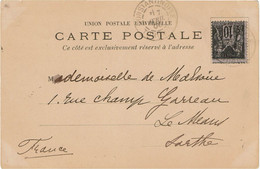 UNION POSTALE UNIVERSELLE
CARTE POSTALE
Ce côté est exclusivement réservé à l'adresse
Mademoiselle de
1. Rue Champ Garreau
Le Mans
Sarthe
France
10